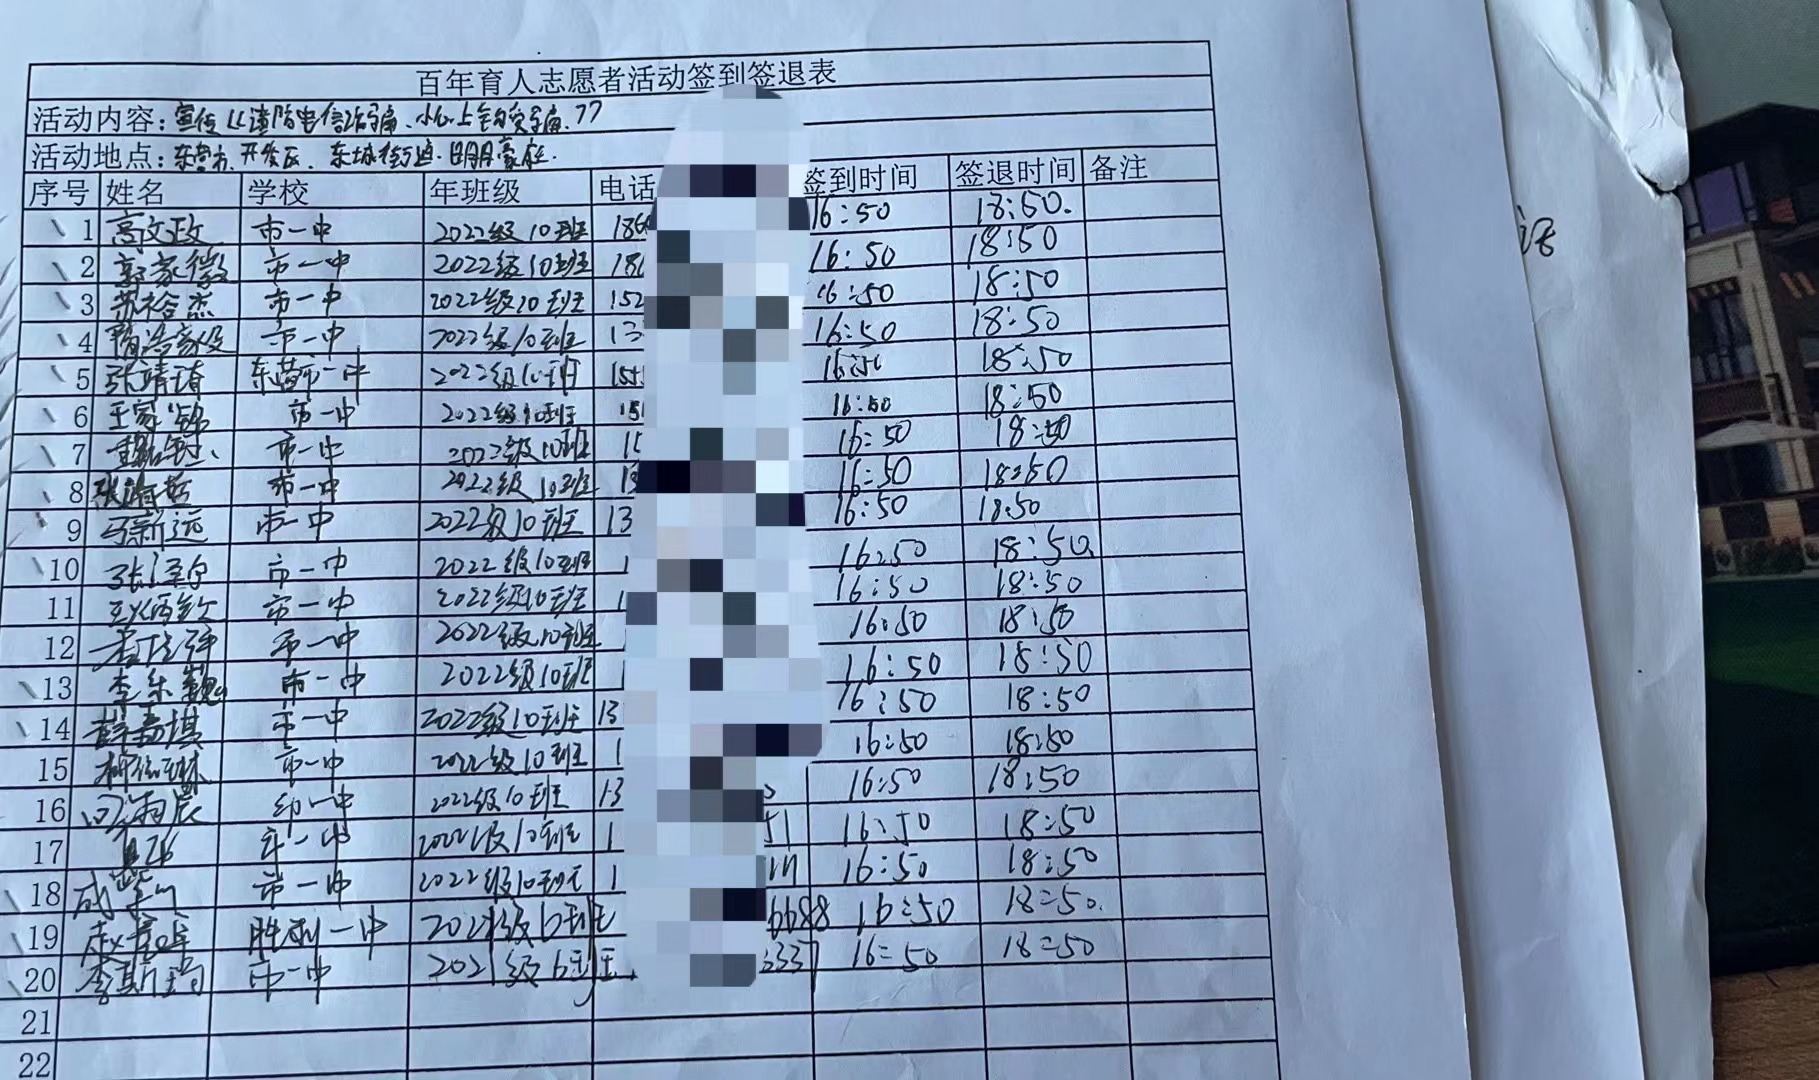 百年育人志愿者活动签到签退表
活动内容：宣传《谨防电信诈骗、小心上钩受骗》
活动地点：东营市、开发区、东城街道、明月豪庭.
序号 姓名 学校 年班级 电话 签到时间 签退时间 备注
1 高文政 市一中 2022级10班 186 16:50 18:50.
2 郭家徽 市一中 2022级10班 18 16:50 18:50
3 苏裕杰 市一中 2022级10班 152 16:50 18:50
4 市一中 2022级10班 13 16:50 18:50
5 张靖琦 东营市一中 2022级10班 155 16:50 18:50
6 王家锦 市一中 2022级10班 15 16:50 18:50
7 市一中 2022级10班 1 16:50 18:50
8 市一中 2022级10班 13 16:50 18:50
9 马新远 市一中 2022级10班 13 16:50 18:50
10 市一中 2022级10班 1 16:50 18:50
11 市一中 2022级10班 1 16:50 18:50
12 市一中 2022级10班 16:50 18:50
13 李东巍 市一中 2022级10班 16:50 18:50
14 薛嘉琪 市一中 2022级10班 13 16:50 18:50
15 市一中 2022级10班 1 16:50 18:50
16 一中 2022级10班 13 16:50 18:50
17 市一中 2022级10班 1 51 16:50 18:50
18 市一中 2022级10班 1 16:50 18:50
19 胜利一中 2021级6班 6688 16:50 18:50.
20 李斯 市一中 2021级6班 3337 16:50 18:50
21
22